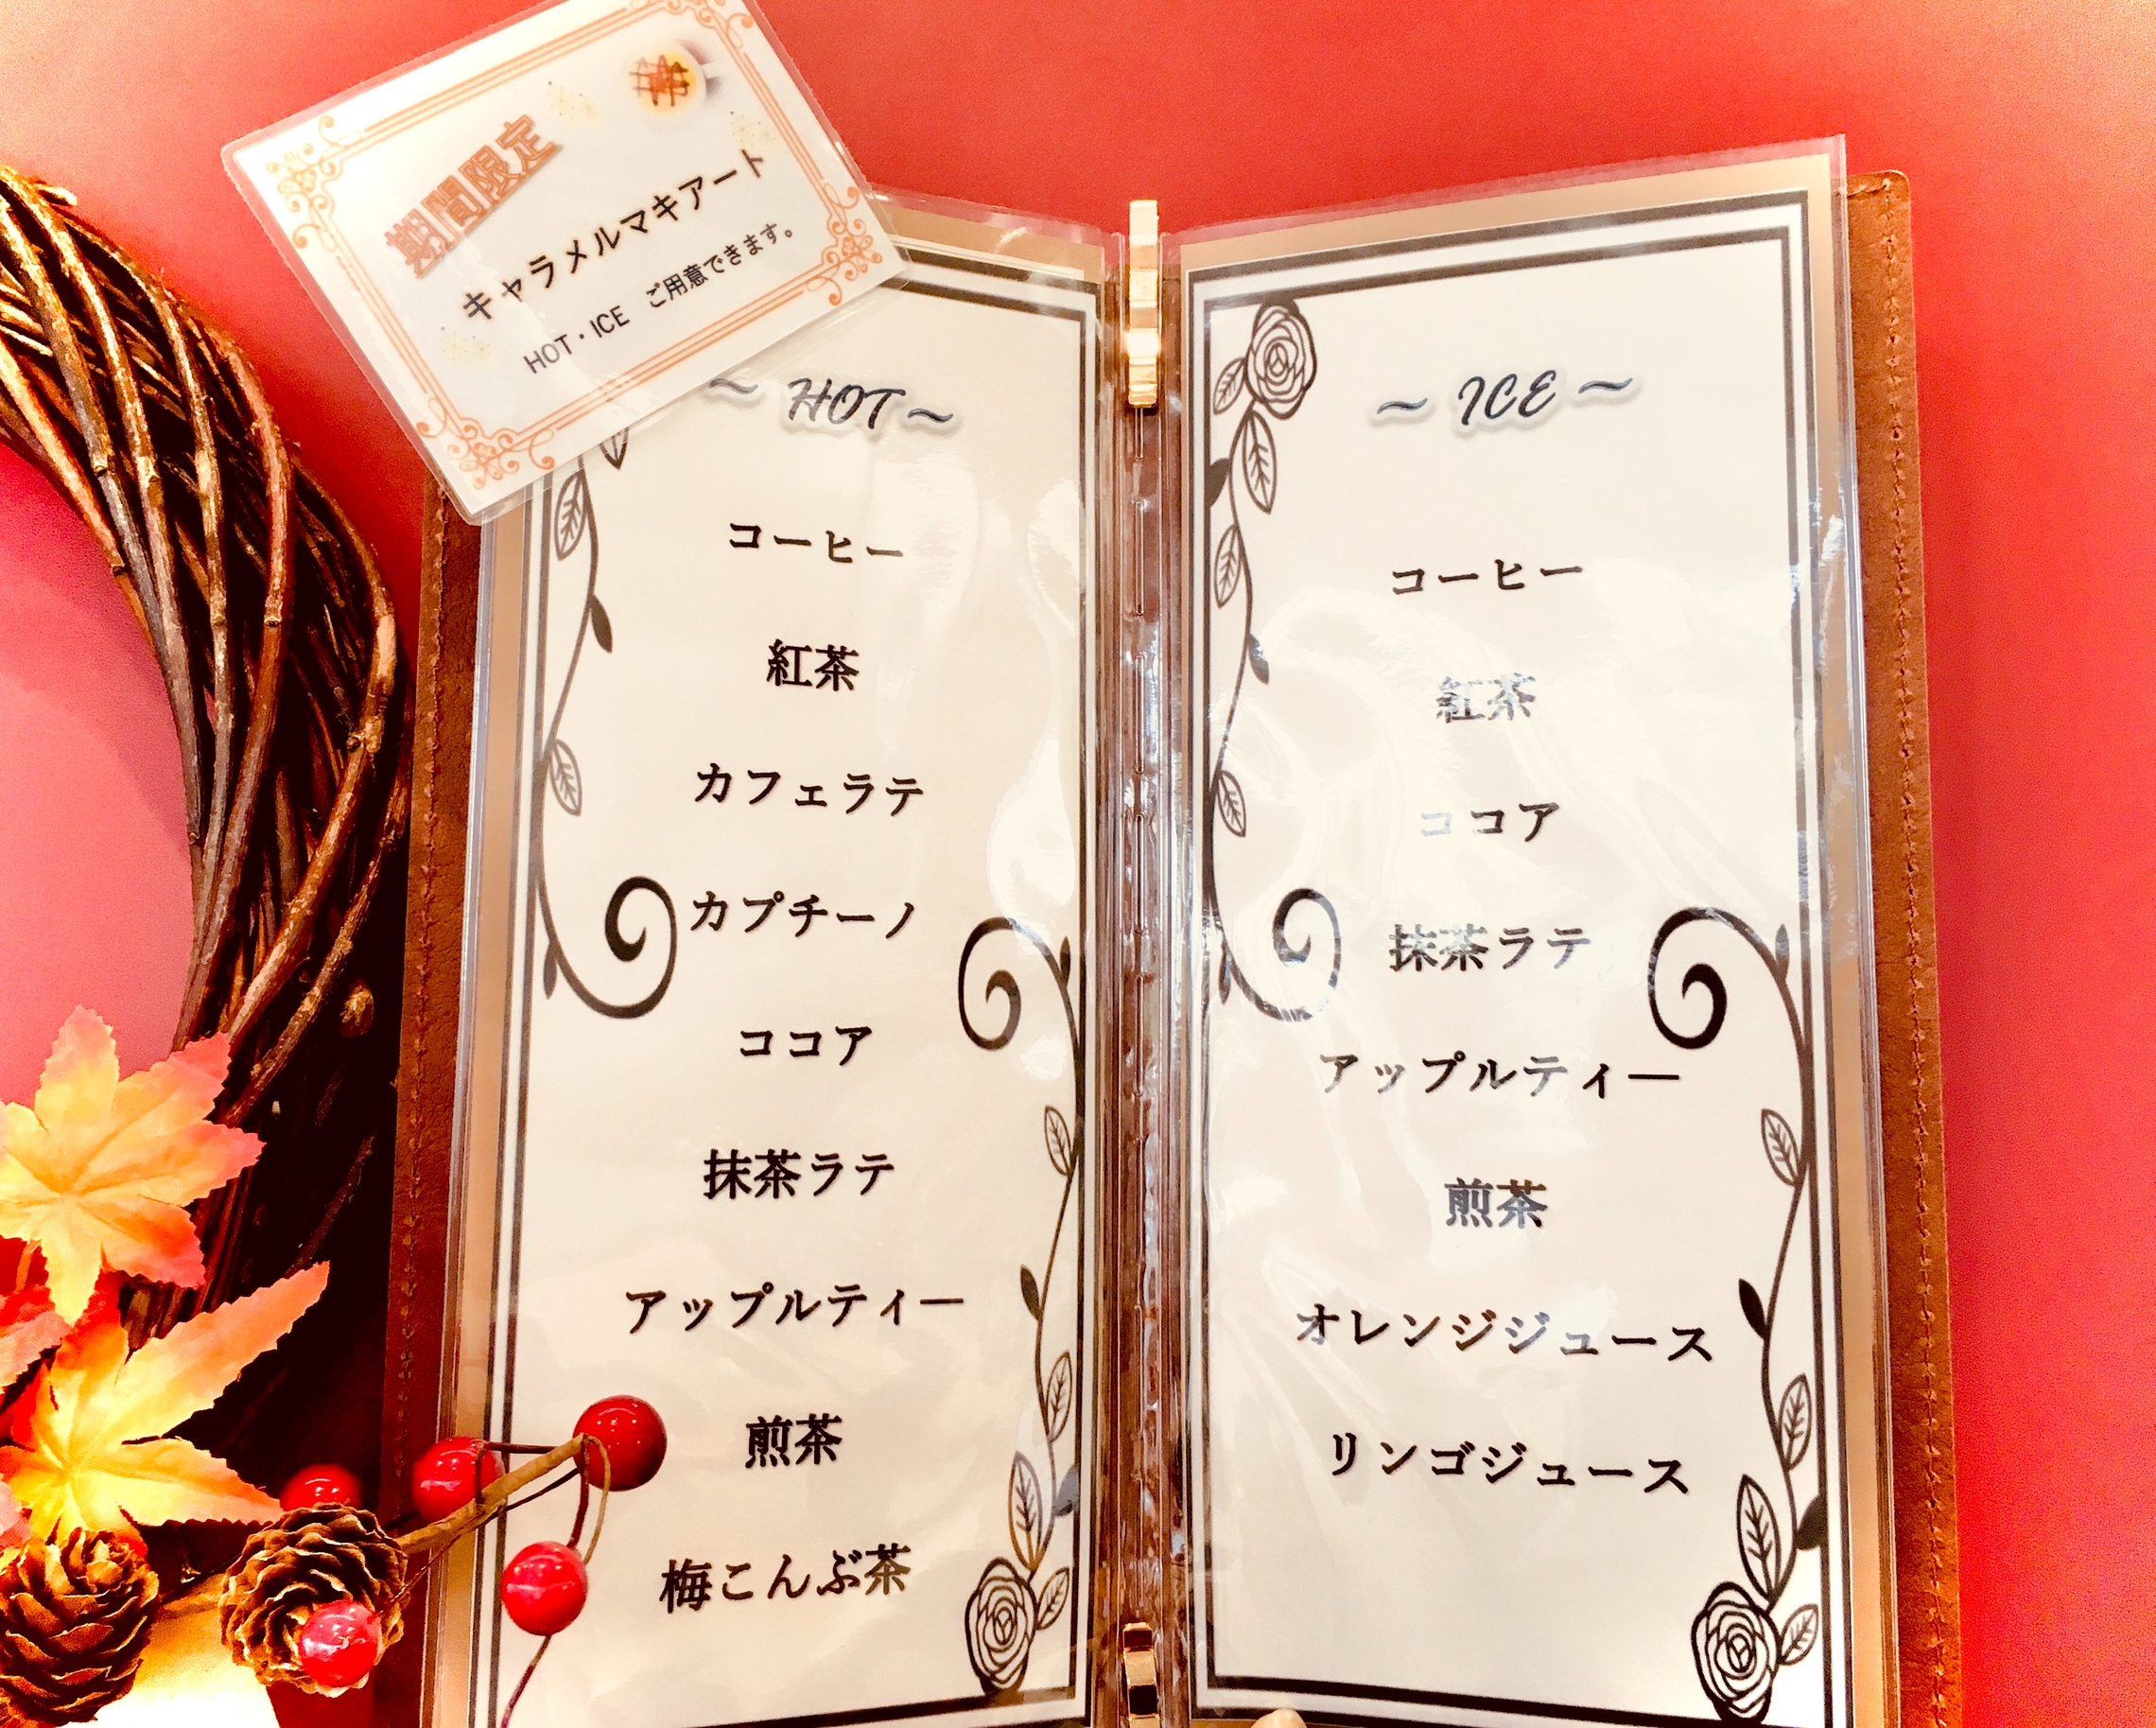 期間限定
キャラメルマキアート
HOT・ICE ご用意できます。
～ HOT ～
コーヒー
紅茶
カフェラテ
カプチーノ
ココア
抹茶ラテ
アップルティー
煎茶
梅こんぶ茶
～ ICE ～
コーヒー
紅茶
ココア
抹茶ラテ
アップルティー
煎茶
オレンジジュース
リンゴジュース